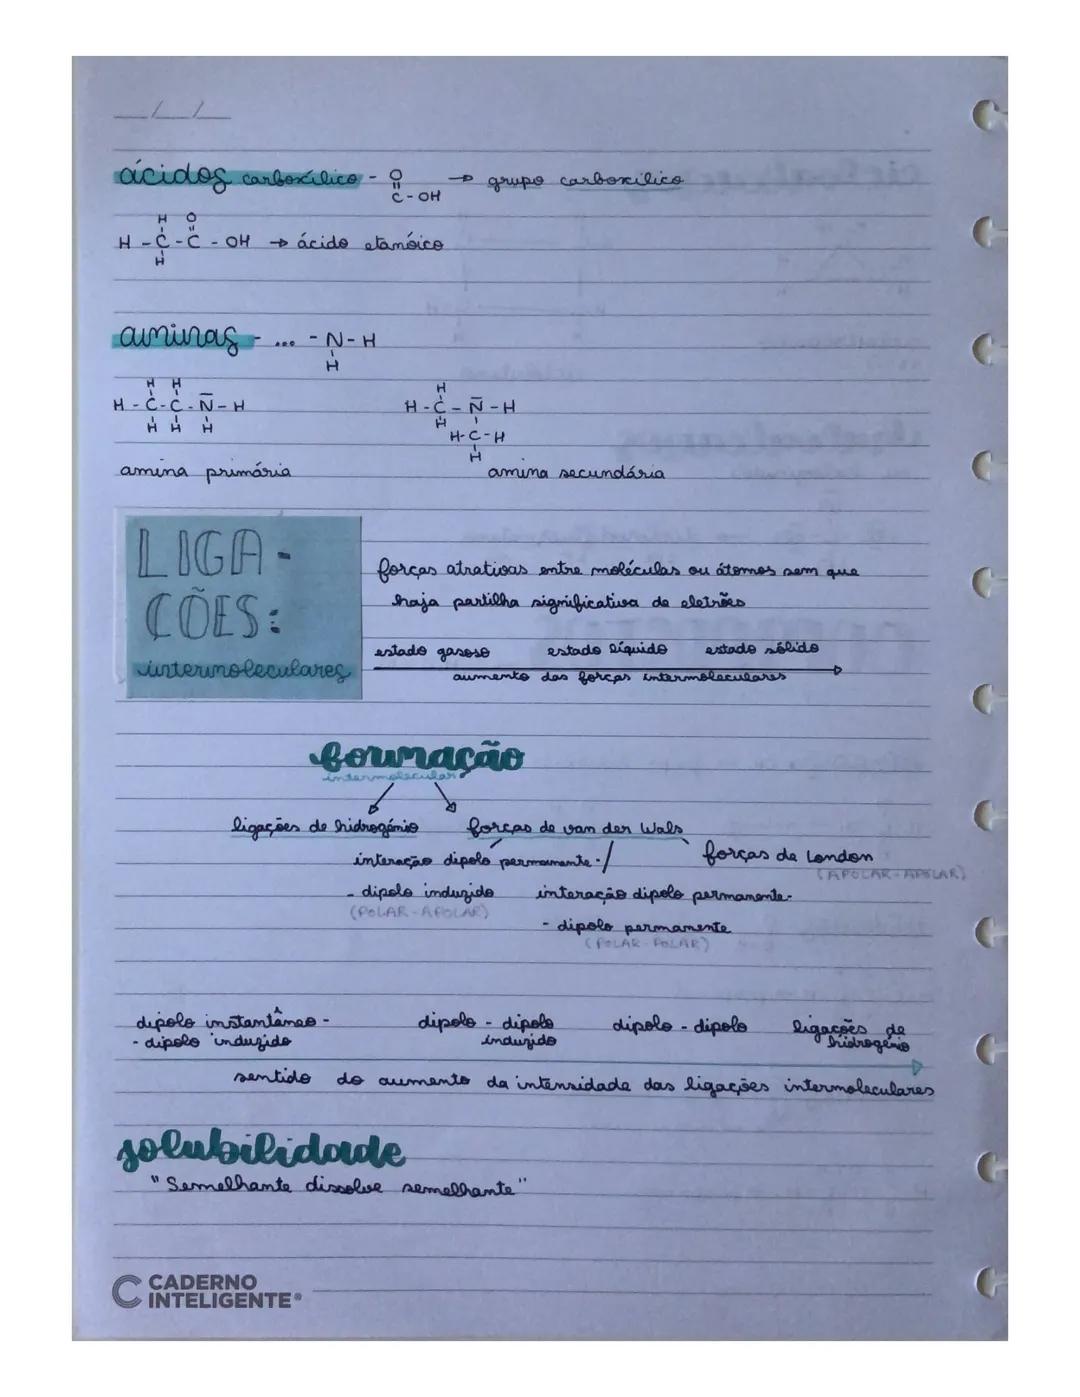 __/__/__
ácidos carboxílico - O → grupo carboxílico
=
C - OH
H O
H - C - C - OH → ácido etanóico
H
aminas - ... - N - H
H
H H
H - C - C - N - H
H H H
H
H - C - N - H
H
H - C - H
H
amina primária amina secundária
LIGA-
ÇÕES:
intermoleculares
forças atrativas entre moléculas ou átomos sem que
haja partilha significativa de eletrões
estado gasoso estado líquido estado sólido
aumento das forças intermoleculares
formação
intermolecular
ligações de hidrogénio forças de van der Wals
interação dipolo permamente - forças de London
(APOLAR-APOLAR)
- dipolo induzido interação dipolo permanente-
(POLAR-APOLAR)
- dipolo permamente
(POLAR-POLAR)
dipolo instantâneo - dipolo - dipolo dipolo - dipolo ligações de
- dipolo induzido induzido hidrogénio
sentido do aumento da intensidade das ligações intermoleculares
solubilidade
"Semelhante dissolve semelhante"
CADERNO
INTELIGENTE®